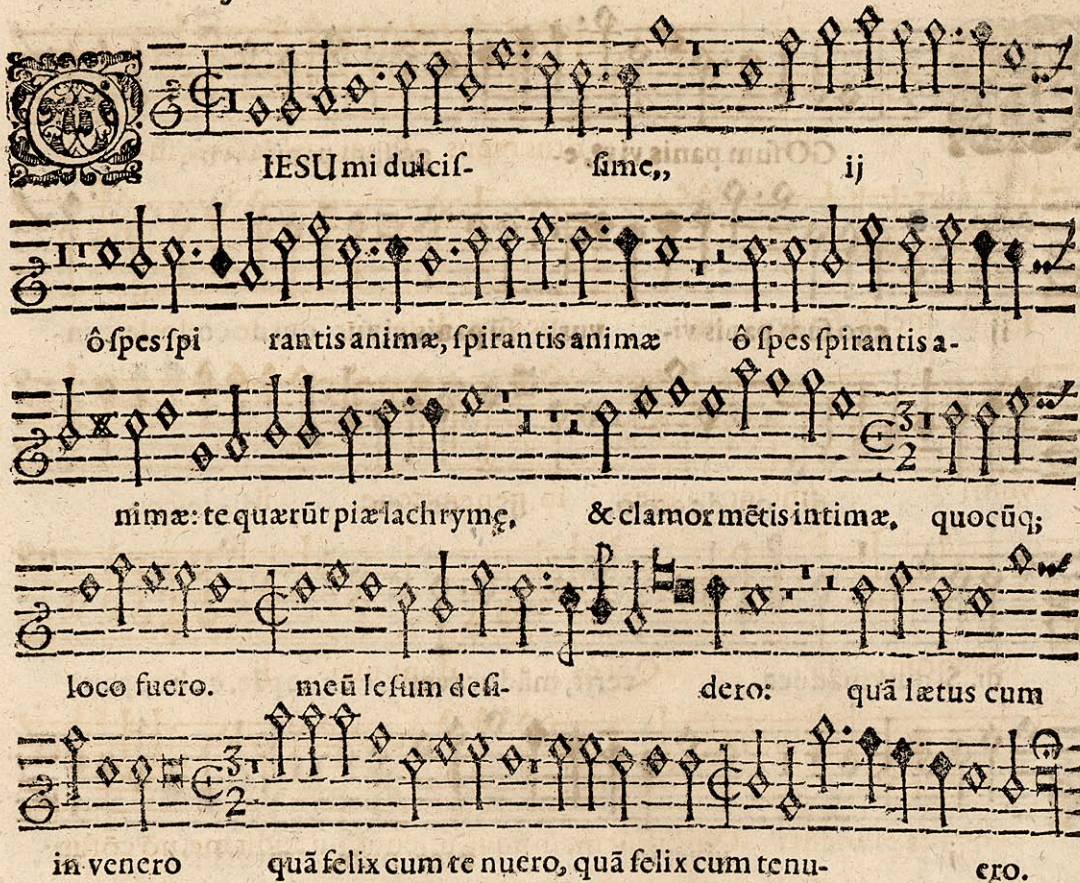 O IESU mi dulciſ- ſime,, ij
ô ſpes ſpi rantis animæ, ſpirantis animæ ô ſpes ſpirantis a-
nimæ: te quærũt piæ lachrymę, & clamor mẽtis intimæ, quocũq;
loco fuero. meũ Ieſum deſi- dero: quã lætus cum
in venero quã felix cum te nuero, quã felix cum tenu- ero.